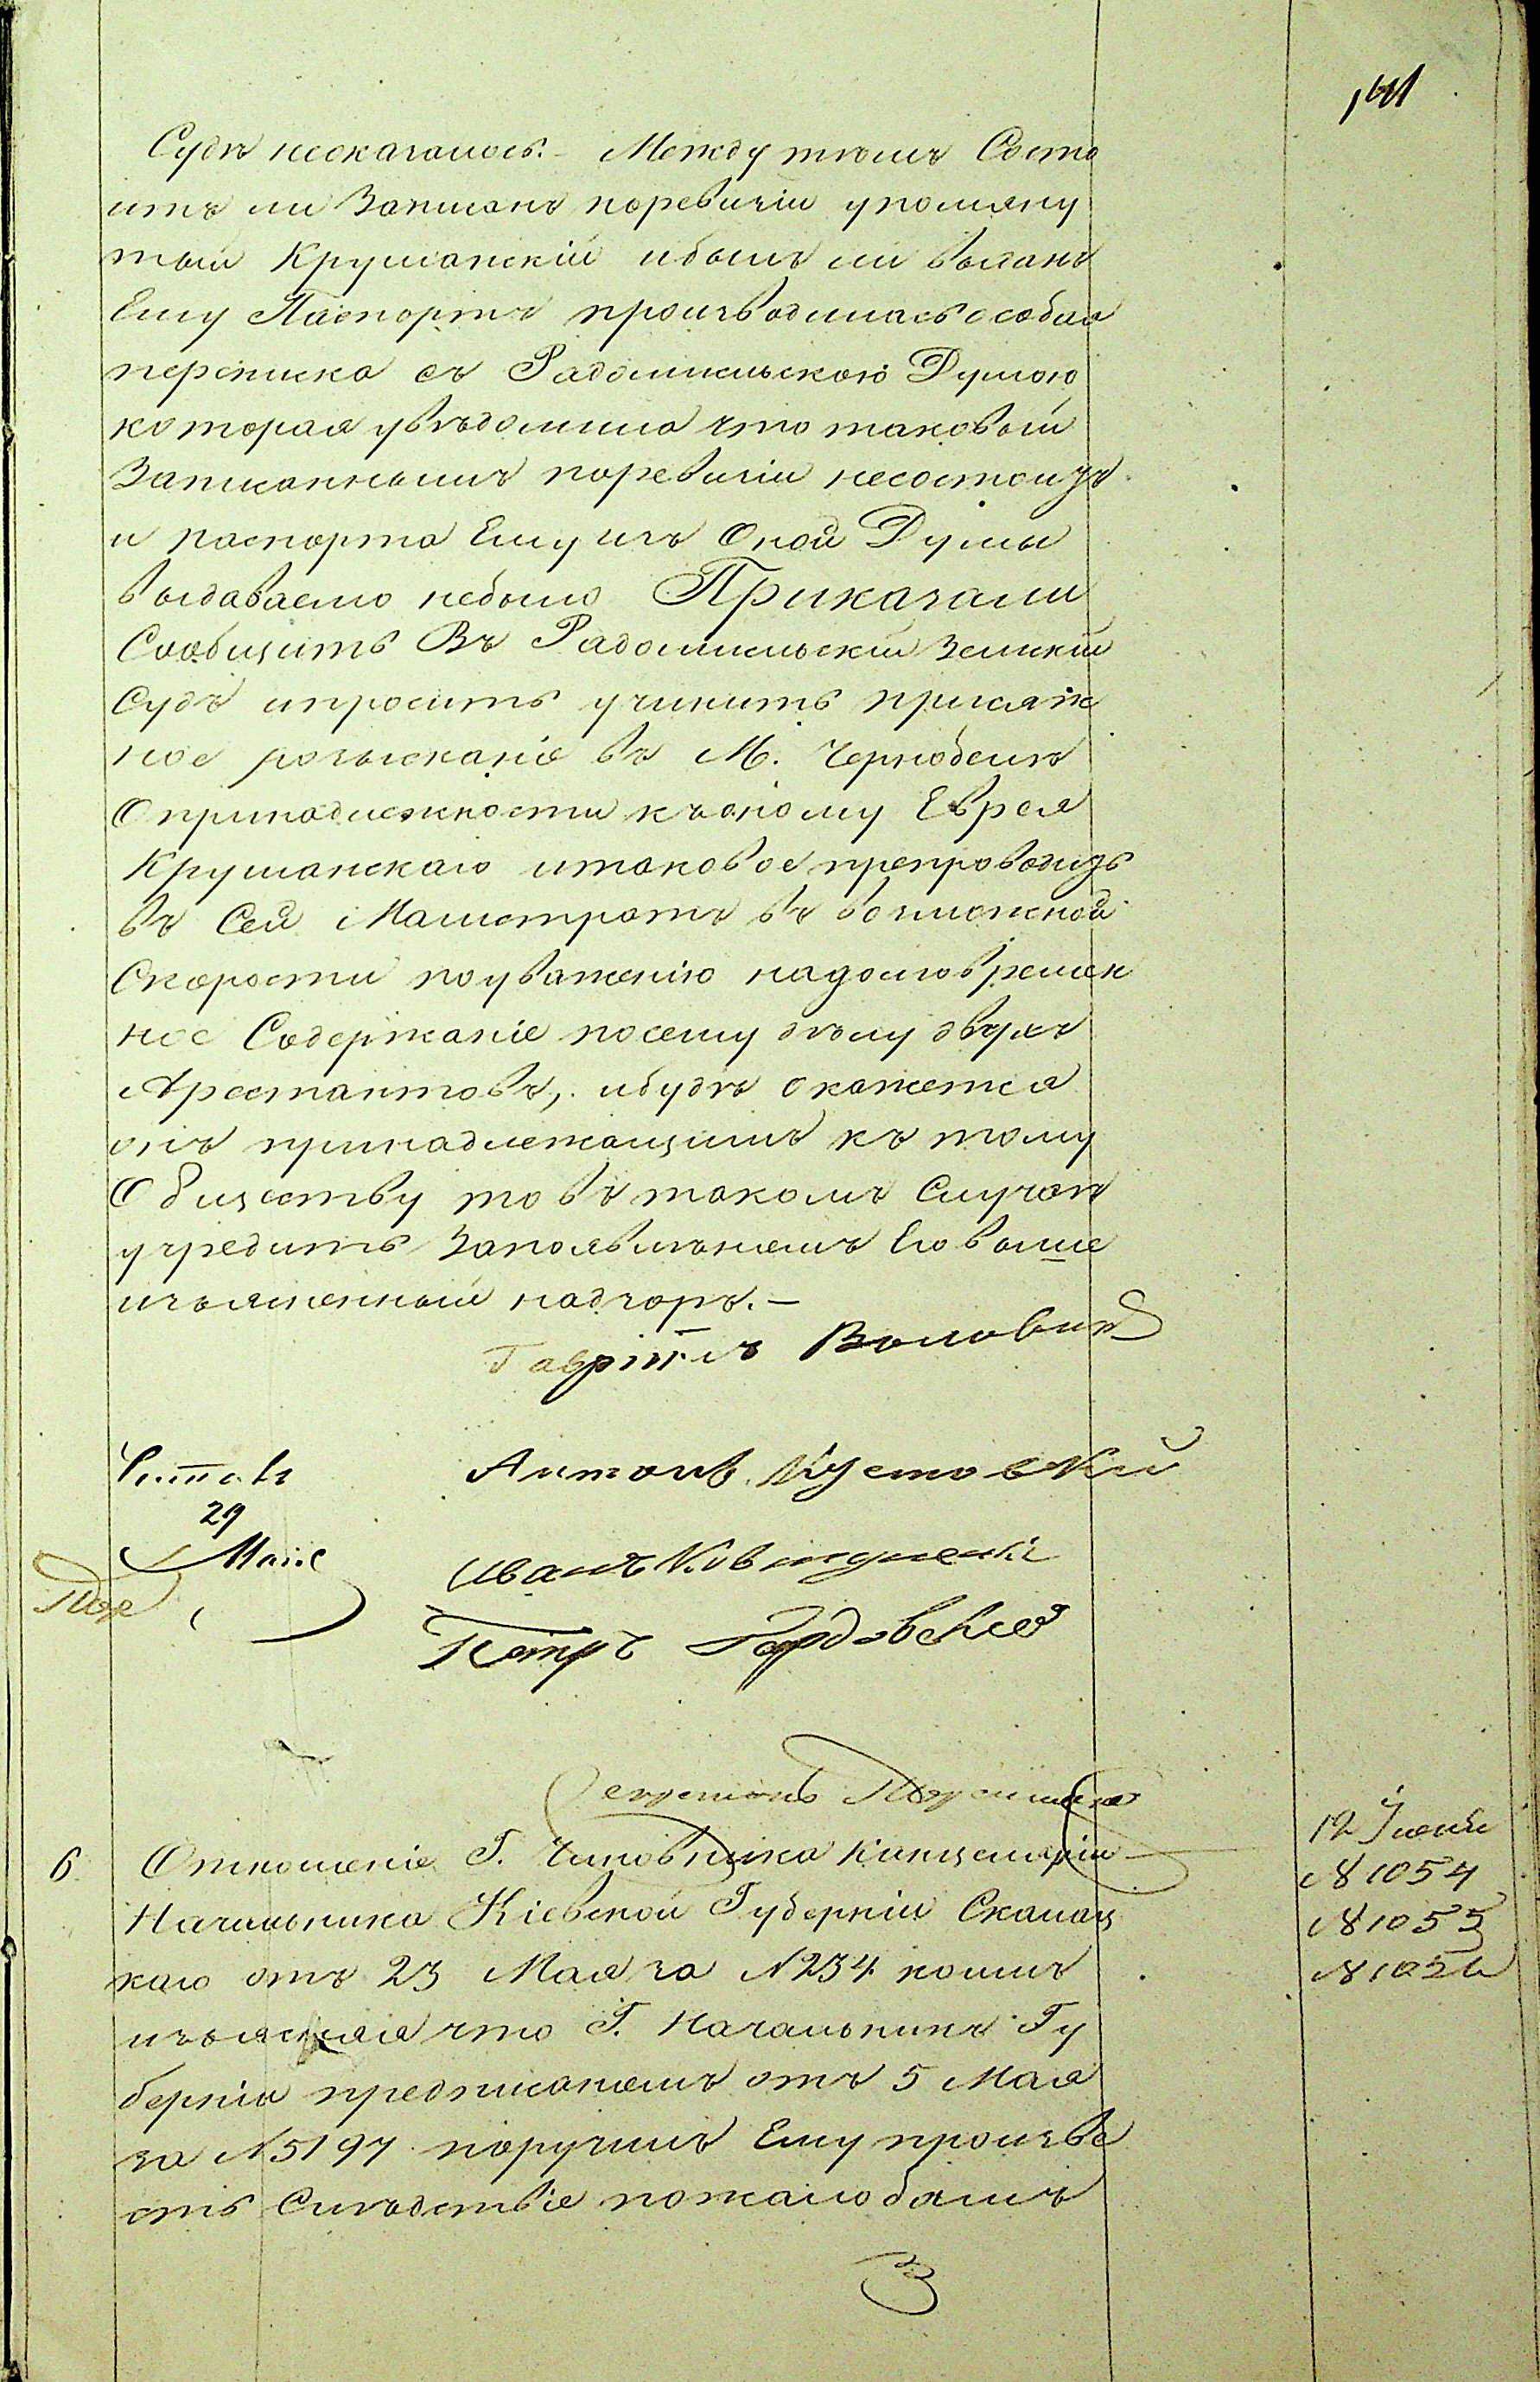 141
Судѣ неоказалось. – Между тѣмъ Состо
итъ ли Записанъ поревизіи упомяну
тый Крушанскій ибылъ ли выданъ
Ему Паспортъ производилась особая
переписка съ Радомисльскою Думою
которая увѣдомила что таковый
Записаннымъ поревизіи несостоитъ
и паспорта Ему изъ Оной Думы
выдаваемо небыло Приказали
Сообщить Въ Радомисльскій Земскій
Судъ ипросить учинить присяж
ное розысканіе въ М. Чернобылѣ
О принадлежности къоному Еврея
Крушанскаго итаковое препроводить
въ Сей Магистратъ въ возможной
Скорости поуваженію надолговремен
ное Содержаніе посему дѣлу двухъ
Арестантовъ, ибудѣ окажется
онъ принадлежащимъ къ тому
Обществу товъ такомъ Случаѣ
учредить Запоявленіемъ Его выше
изъясненный надзоръ. –
Гавріилъ Воловик
Читалъ Антонъ Кустовскій
29
Маія
Иванъ
Петръ
6. Отношеніе Г. Чиновника Канцеляріи
Начальника Кіевской Губерніи Скалац
каго отъ 23 Мая за №234 коимъ
изъясняя что Г. Начальникъ Гу
берніи предписаніемъ отъ 5 Мая
за №5197 поручилъ Ему произве
сть Слѣдствіе пожалобамъ
12 Іюня
№ 1054
№ 1055
№ 1056